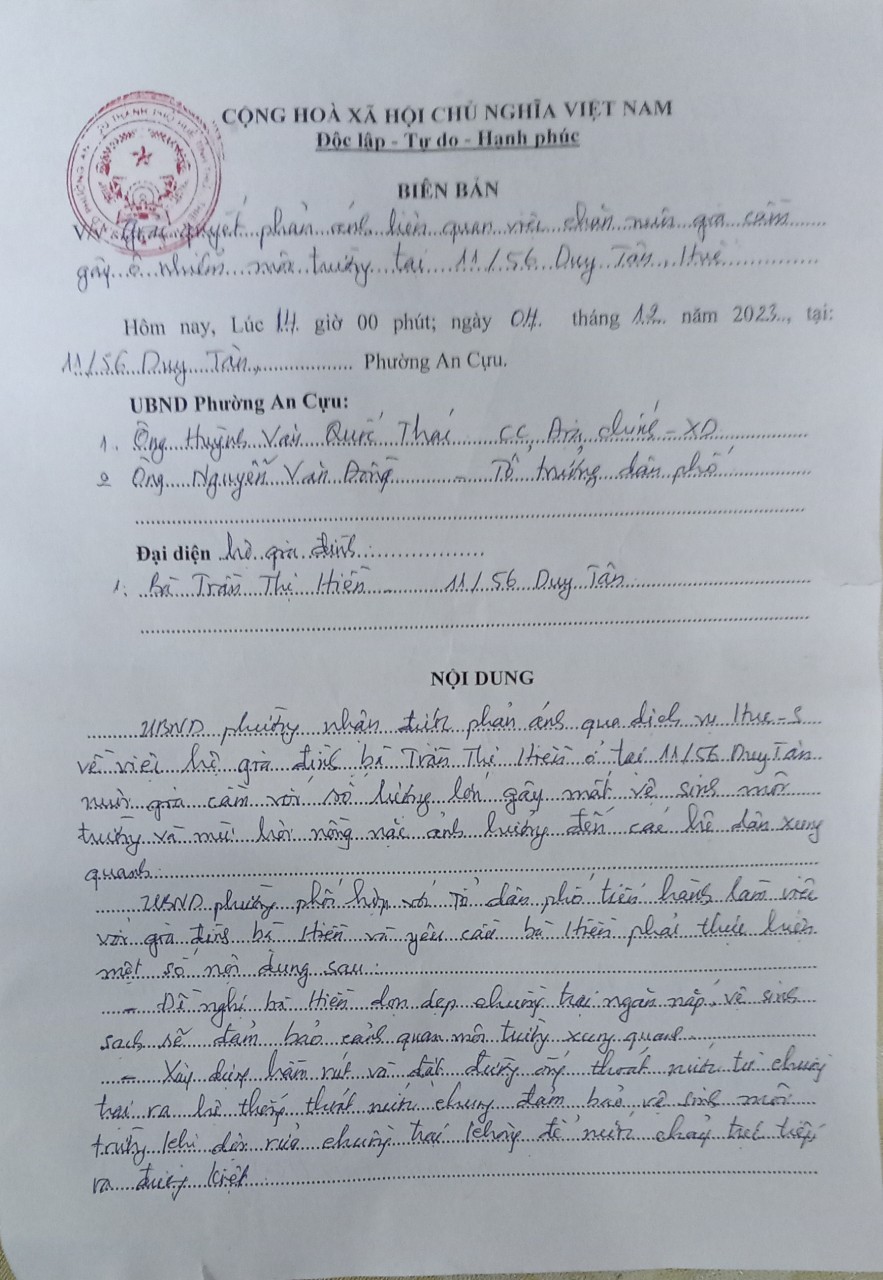 CỘNG HOÀ XÃ HỘI CHỦ NGHĨA VIỆT NAM
Độc lập - Tự do - Hạnh phúc
BIÊN BẢN
V/v Giải quyết phản ánh liên quan việc chăn nuôi gia cầm
gây ô nhiễm môi trường tại 11/56 Duy Tân, Huế
Hôm nay, Lúc 14 giờ 00 phút; ngày 04 tháng 12 năm 2023, tại:
11/56 Duy Tân, Phường An Cựu.
UBND Phường An Cựu:
1. Ông Huỳnh Văn Quốc Thái CC Địa chính - XD
2 Ông Nguyễn Văn Đông - Tổ trưởng dân phố
Đại diện hộ gia đình:
1. Bà Trần Thị Hiền 11/56 Duy Tân
NỘI DUNG
UBND phường nhận được phản ánh qua dịch vụ Hue-S
về việc hộ gia đình bà Trần Thị Hiền ở tại 11/56 Duy Tân
nuôi gia cầm với số lượng lớn gây mất vệ sinh môi
trường và mùi hôi nồng nặc ảnh hưởng đến các hộ dân xung
quanh.
UBND phường phối hợp với Tổ dân phố tiến hành làm việc
với gia đình bà Hiền và yêu cầu bà Hiền phải thực hiện
một số nội dung sau:
- Đề nghị bà Hiền dọn dẹp chuồng trại ngăn nắp, vệ sinh
sạch sẽ đảm bảo cảnh quan môi trường xung quanh.
- Xây dựng hầm rút và đặt đường ống thoát nước từ chuồng
trại ra hệ thống thoát nước chung đảm bảo vệ sinh môi
trường khi dội rửa chuồng trại không để nước chảy trực tiếp
ra đường kiệt.